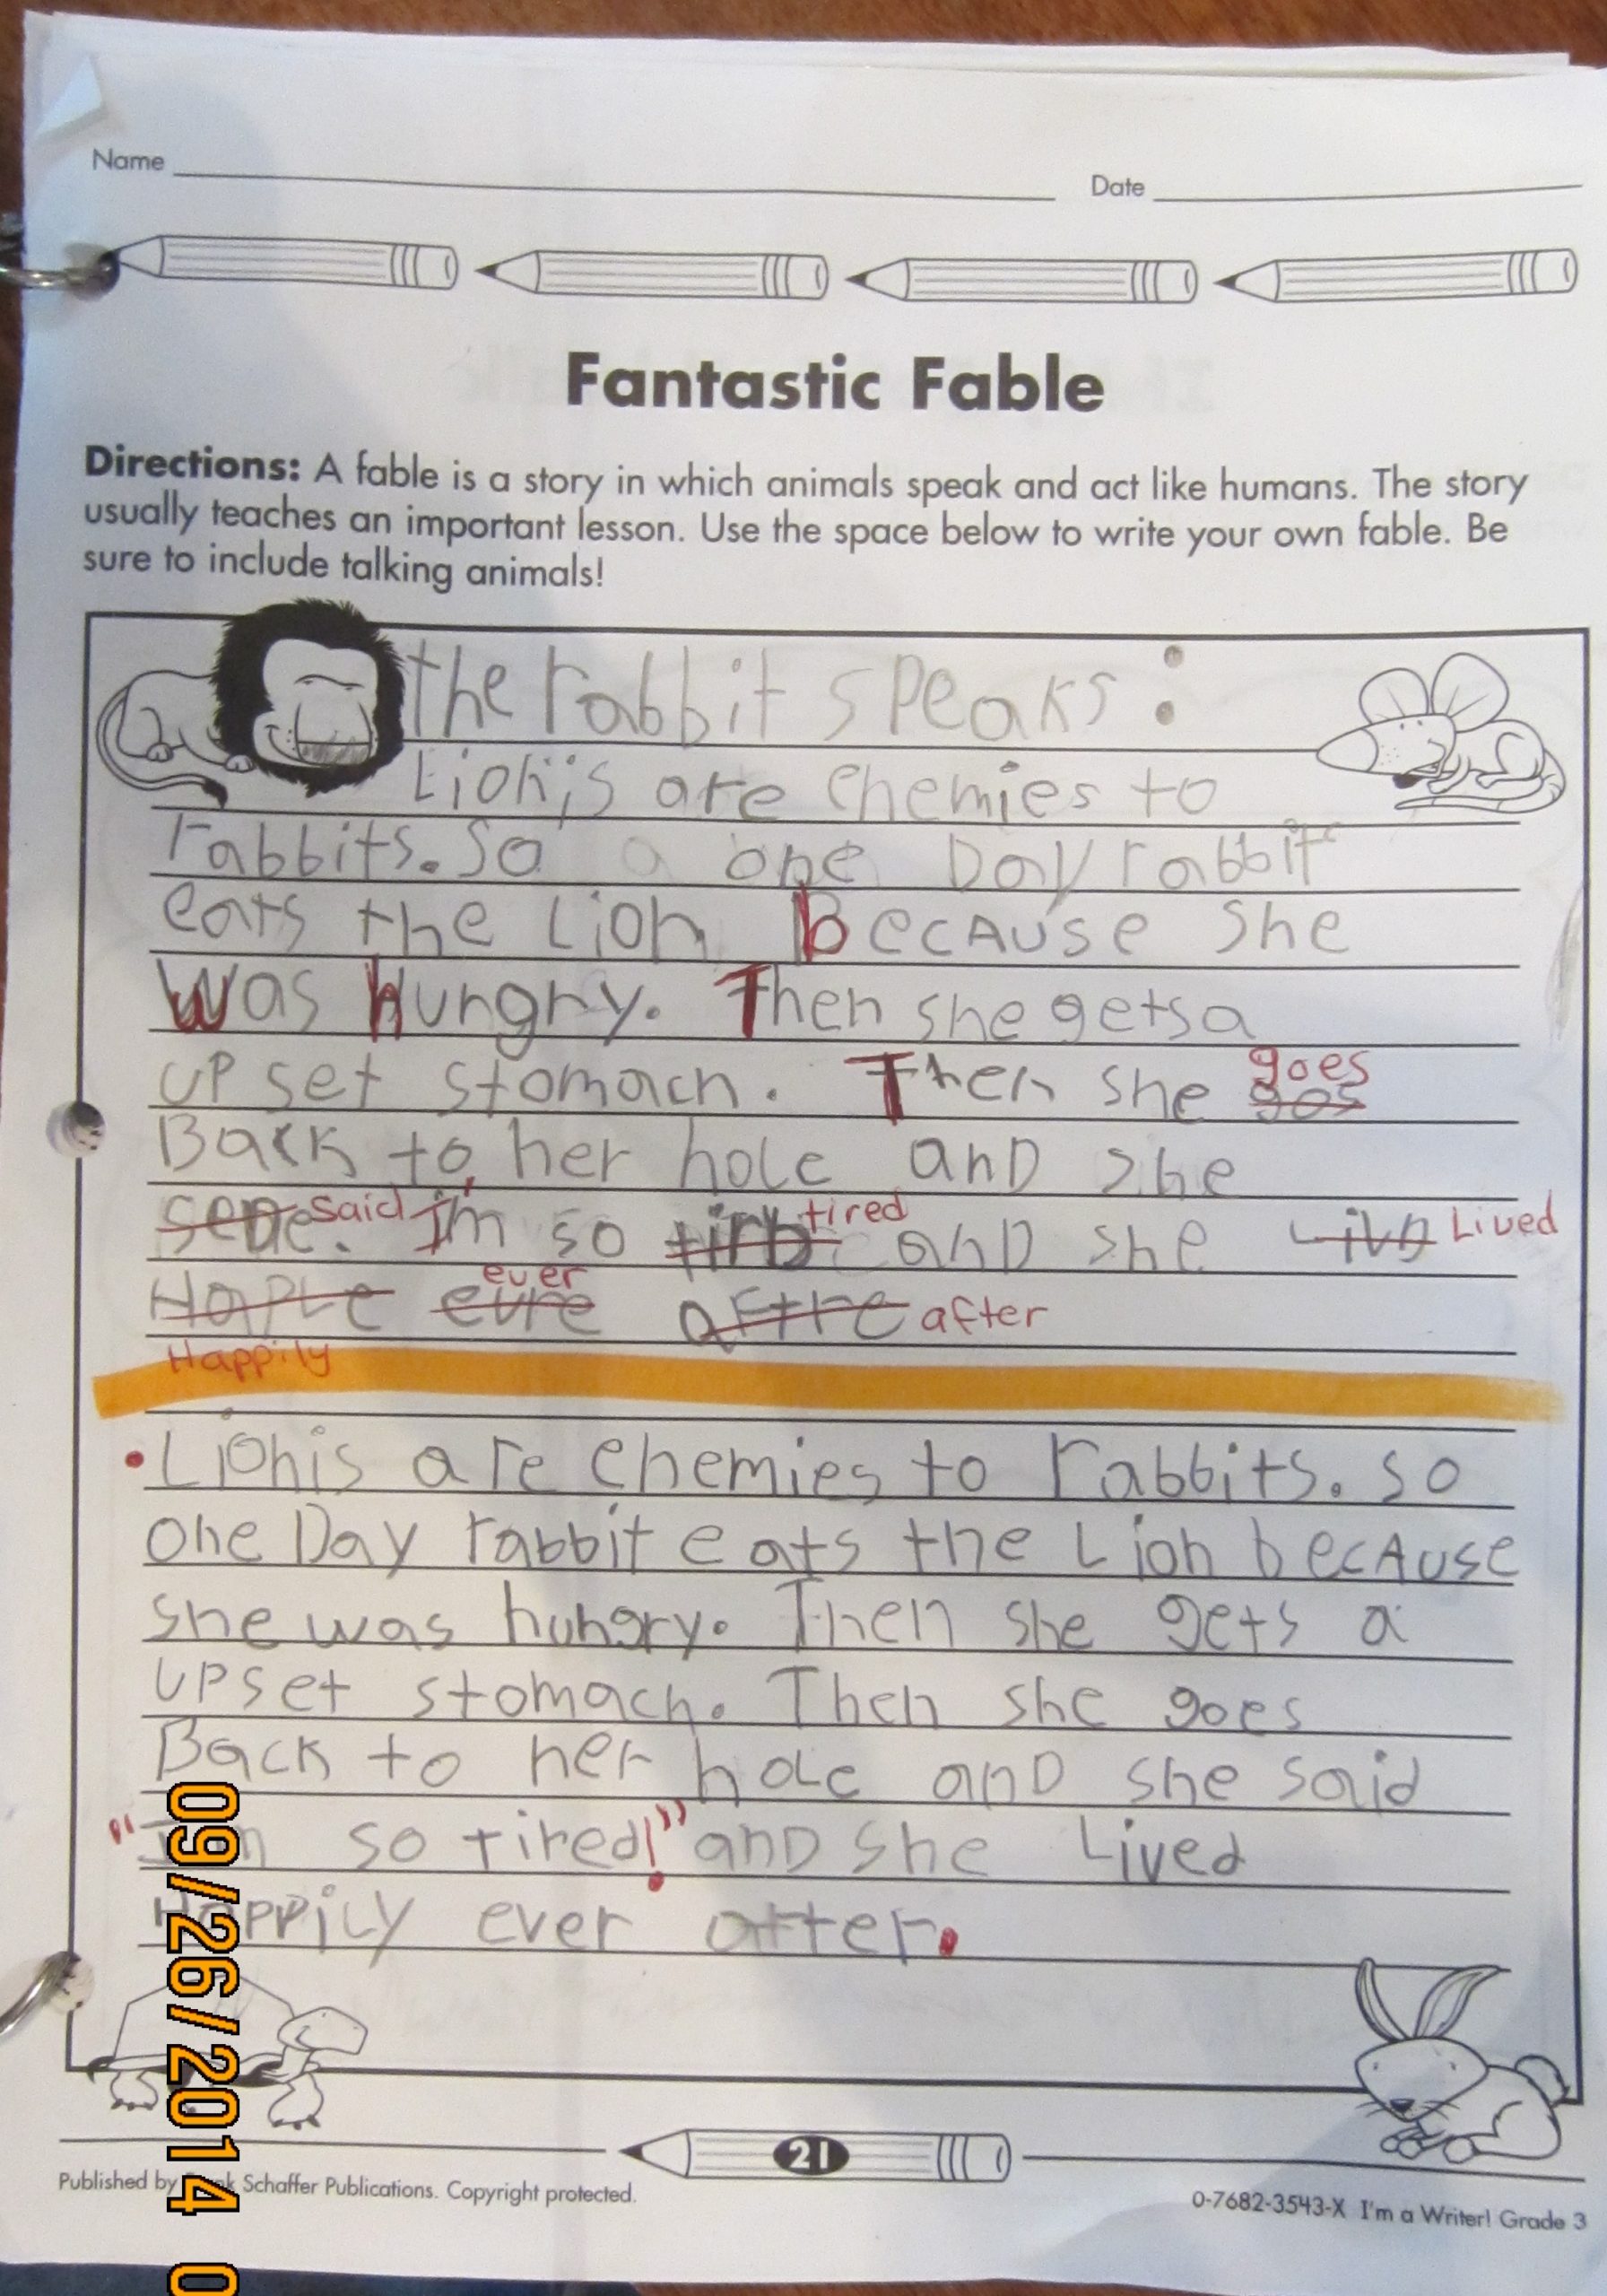 Name Date
Fantastic Fable
Directions: A fable is a story in which animals speak and act like humans. The story
usually teaches an important lesson. Use the space below to write your own fable. Be
sure to include talking animals!
the rabbit speaks:
Lion;s are enemies to
rabbits. So a one Day rabbit
eats the Lion BecAuse she
was hungry. Then she gets a
upset stomach. Then she goes gos
Back to her hole and she
sede. said I'm so tirb tired and she Livd Lived
Haple eure ever aftre after
Happily
• Lionis are enemies to rabbits. so
one Day rabbit eats the Lion becAuse
she was hungry. Then she gets a
upset stomach. Then she goes
Back to her hole and she said
"I'm so tired!" and she Lived
Happily ever after.
21
Published by Frank Schaffer Publications. Copyright protected.
0-7682-3543-X I'm a Writer! Grade 3
09/26/2014 0